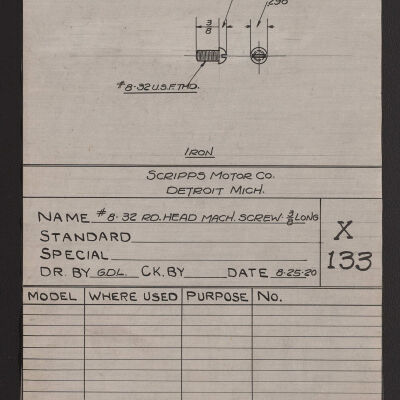 .296
3/8
#8-32 U.S.F. THD.
IRON
SCRIPPS MOTOR CO.
DETROIT MICH.
NAME #8-32 RD. HEAD MACH. SCREW 3/8 LONG
STANDARD
SPECIAL
DR. BY G.D.L. CK. BY DATE 8-25-20
X
133
MODEL WHERE USED PURPOSE NO.